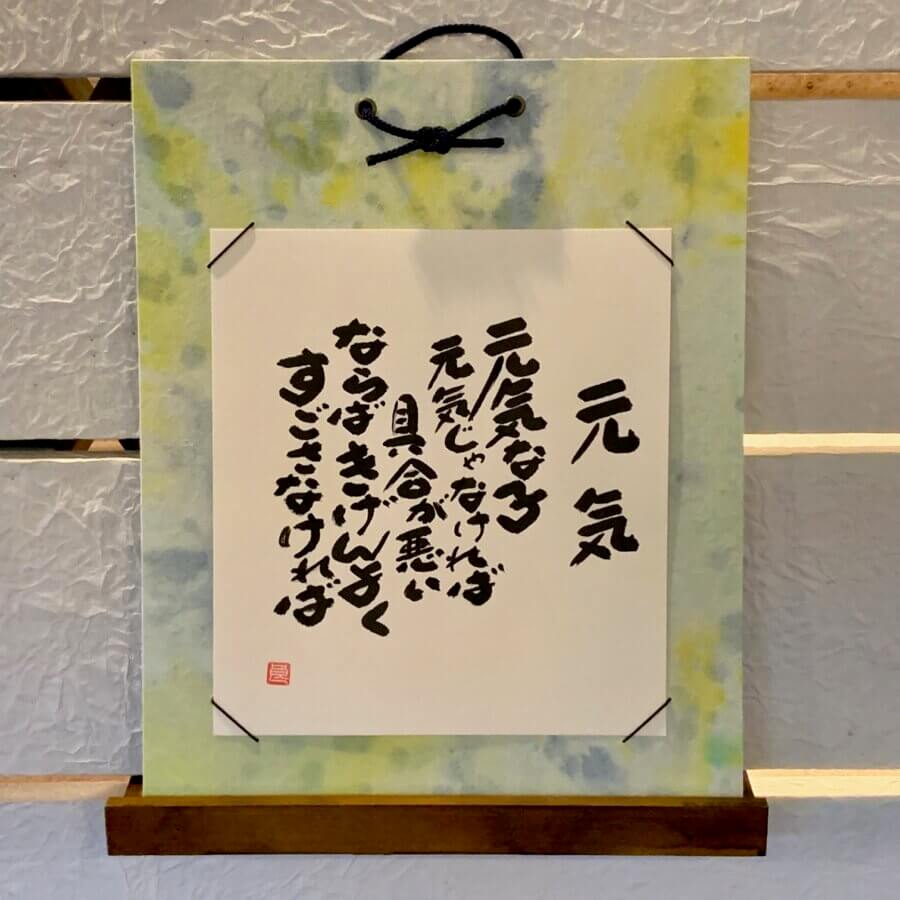 元気
元気な子
元気じゃなければ
具合が悪い
ならばきげんよく
すごさなければ